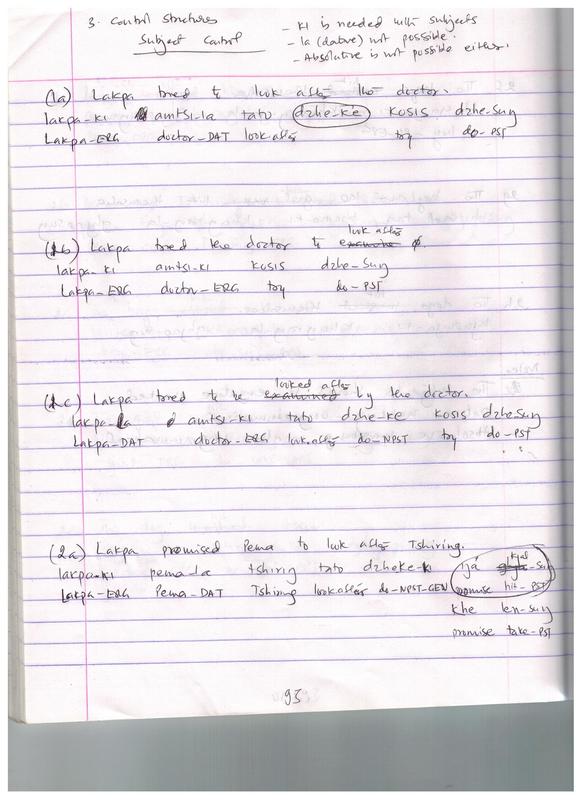 3. Control Structures
Subject Control
- KI is needed with subjects
- la (dative) not possible.
- Absolutive is not possible either.
(1a) Lakpa tried to look after the doctor.
lakpa-KI amtsi-la tato dzhe-ke KOSIS dzhe-suŋ
Lakpa-ERG doctor-DAT look.after try do-PST
(1b) Lakpa tried the doctor to look after ∅.
lakpa-KI amtsi-KI KOSIS dzhe-suŋ
Lakpa-ERG doctor-ERG try do-PST
(1c) Lakpa tried to be looked after by the doctor.
lakpa-la amtsi-KI tato dzhe-ke KOSIS dzhe-suŋ
Lakpa-DAT doctor-ERG look.after do-NPST try do-PST
(2a) Lakpa promised Pema to look after Tshiring.
lakpa-KI pema-la tshiriŋ tato dzheke-KI
Lakpa-ERG Pema-DAT Tshiring look.after do-NPST-GEN promise hit-PST
khe len-suŋ
promise take-PST
93